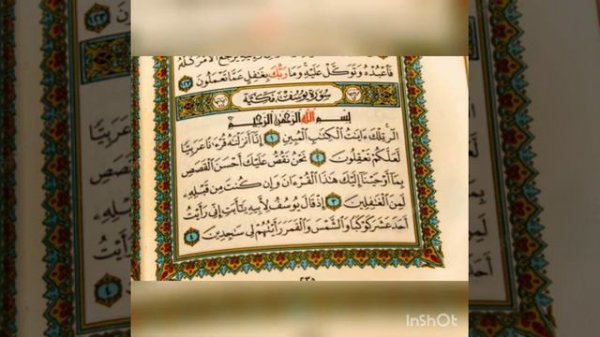 فَاعْبُدْهُ وَتَوَكَّلْ عَلَيْهِ وَمَا رَبُّكَ بِغَافِلٍ عَمَّا تَعْمَلُونَ ١٢٣
سُورَةُ يُوسُفَ مَكِّيَّة
بِسْمِ اللَّهِ الرَّحْمَٰنِ الرَّحِيمِ
الٓر تِلْكَ ءَايَٰتُ الْكِتَٰبِ الْمُبِينِ ١ إِنَّآ أَنزَلْنَٰهُ قُرْءَٰنًا عَرَبِيًّا
لَّعَلَّكُمْ تَعْقِلُونَ ٢ نَحْنُ نَقُصُّ عَلَيْكَ أَحْسَنَ الْقَصَصِ
بِمَآ أَوْحَيْنَآ إِلَيْكَ هَٰذَا الْقُرْءَانَ وَإِن كُنتَ مِن قَبْلِهِۦ
لَمِنَ الْغَٰفِلِينَ ٣ إِذْ قَالَ يُوسُفُ لِأَبِيهِ يَٰٓأَبَتِ إِنِّى رَأَيْتُ
أَحَدَ عَشَرَ كَوْكَبًا وَالشَّمْسَ وَالْقَمَرَ رَأَيْتُهُمْ لِى سَٰجِدِينَ ٤
InShOt